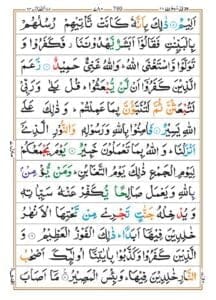 اَلِيْمٌ ۝ ذٰلِكَ بِاَنَّهٗ كَانَتْ تَّاْتِيْهِمْ رُسُلُهُمْ
بِالْبَيِّنٰتِ فَقَالُوْۤا اَبَشَرٌ يَّهْدُوْنَنَا ۫ فَكَفَرُوْا وَ
تَوَلَّوْا وَّاسْتَغْنَى اللّٰهُ ؕ وَاللّٰهُ غَنِيٌّ حَمِيْدٌ ۝ زَعَمَ
الَّذِيْنَ كَفَرُوْۤا اَنْ لَّنْ يُّبْعَثُوْا ؕ قُلْ بَلٰى وَ
رَبِّيْ لَتُبْعَثُنَّ ثُمَّ لَتُنَبَّؤُنَّ بِمَا عَمِلْتُمْ ؕ وَذٰلِكَ عَلَى
اللّٰهِ يَسِيْرٌ ۝ فَاٰمِنُوْا بِاللّٰهِ وَرَسُوْلِهٖ وَالنُّوْرِ الَّذِيْۤ
اَنْزَلْنَا ؕ وَاللّٰهُ بِمَا تَعْمَلُوْنَ خَبِيْرٌ ۝ يَوْمَ يَجْمَعُكُمْ
لِيَوْمِ الْجَمْعِ ذٰلِكَ يَوْمُ التَّغَابُنِ ؕ وَمَنْ يُّؤْمِنْۢ
بِاللّٰهِ وَيَعْمَلْ صَالِحًا يُّكَفِّرْ عَنْهُ سَيِّاٰتِهٖ
وَيُدْخِلْهُ جَنّٰتٍ تَجْرِيْ مِنْ تَحْتِهَا الْاَنْهٰرُ
خٰلِدِيْنَ فِيْهَاۤ اَبَدًا ؕ ذٰلِكَ الْفَوْزُ الْعَظِيْمُ ۝ وَ
الَّذِيْنَ كَفَرُوْا وَكَذَّبُوْا بِاٰيٰتِنَاۤ اُولٰٓئِكَ اَصْحٰبُ
النَّارِ خٰلِدِيْنَ فِيْهَا ؕ وَبِئْسَ الْمَصِيْرُ ۝ مَاۤ اَصَابَ